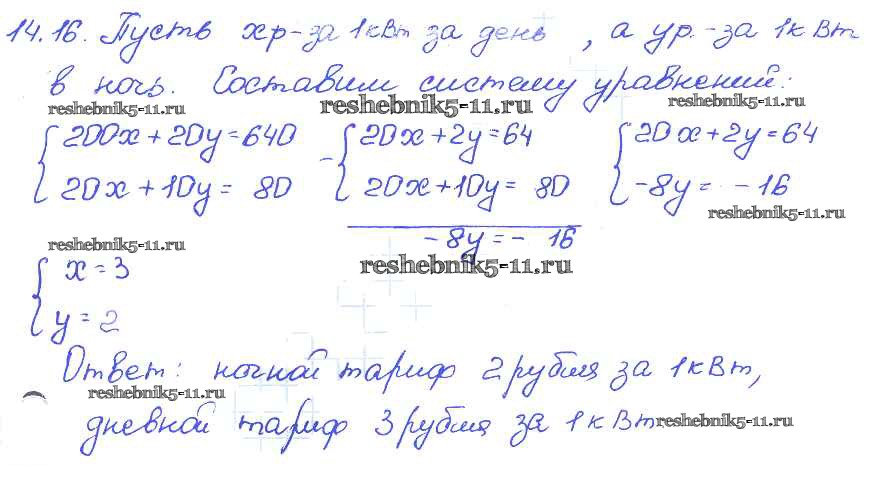 14.16. Пусть х р-за 1кВт за день, а у р.-за 1кВт
в ночь. Составим систему уравнений:
reshebnik5-11.ru reshebnik5-11.ru reshebnik5-11.ru
{200x + 20y = 640 - {20x + 2y = 64 {20x + 2y = 64
{20x + 10y = 80 {20x + 10y = 80 {-8y = -16
reshebnik5-11.ru
-8y = - 16
reshebnik5-11.ru
reshebnik5-11.ru
{x = 3
{y = 2
Ответ: ночной тариф 2 рубля за 1кВт,
reshebnik5-11.ru
дневной тариф 3 рубля за 1кВт
reshebnik5-11.ru